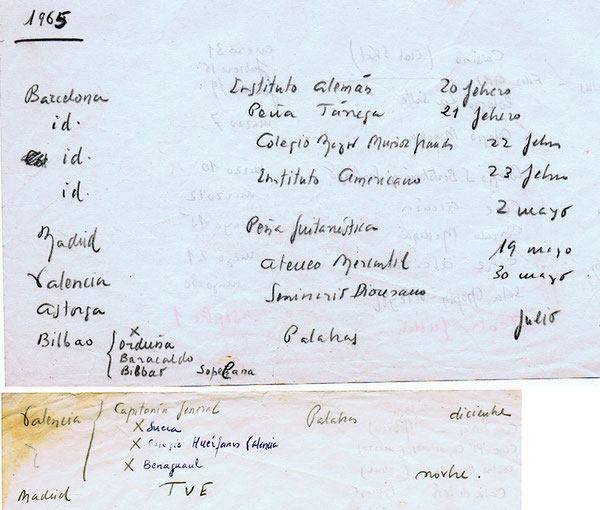 1965
Barcelona Instituto alemán 20 febrero
id. Peña Tárrega 21 febrero
id. Colegio Mayor Muñoz 22 febr
id. Instituto Americano 23 febr
2 mayo
Madrid Peña guitarrística 19 mayo
Valencia Ateneo Mercantil 30 mayo
Astorga Seminario Diocesano
Bilbao Palabras julio
X Orduña
Baracaldo
Bilbao Sopelana
Valencia Capitanía General Palabras diciembre
X Sueca
X Colegio Huérfanos Valencia
X Benaguacil
Madrid TVE novbre.